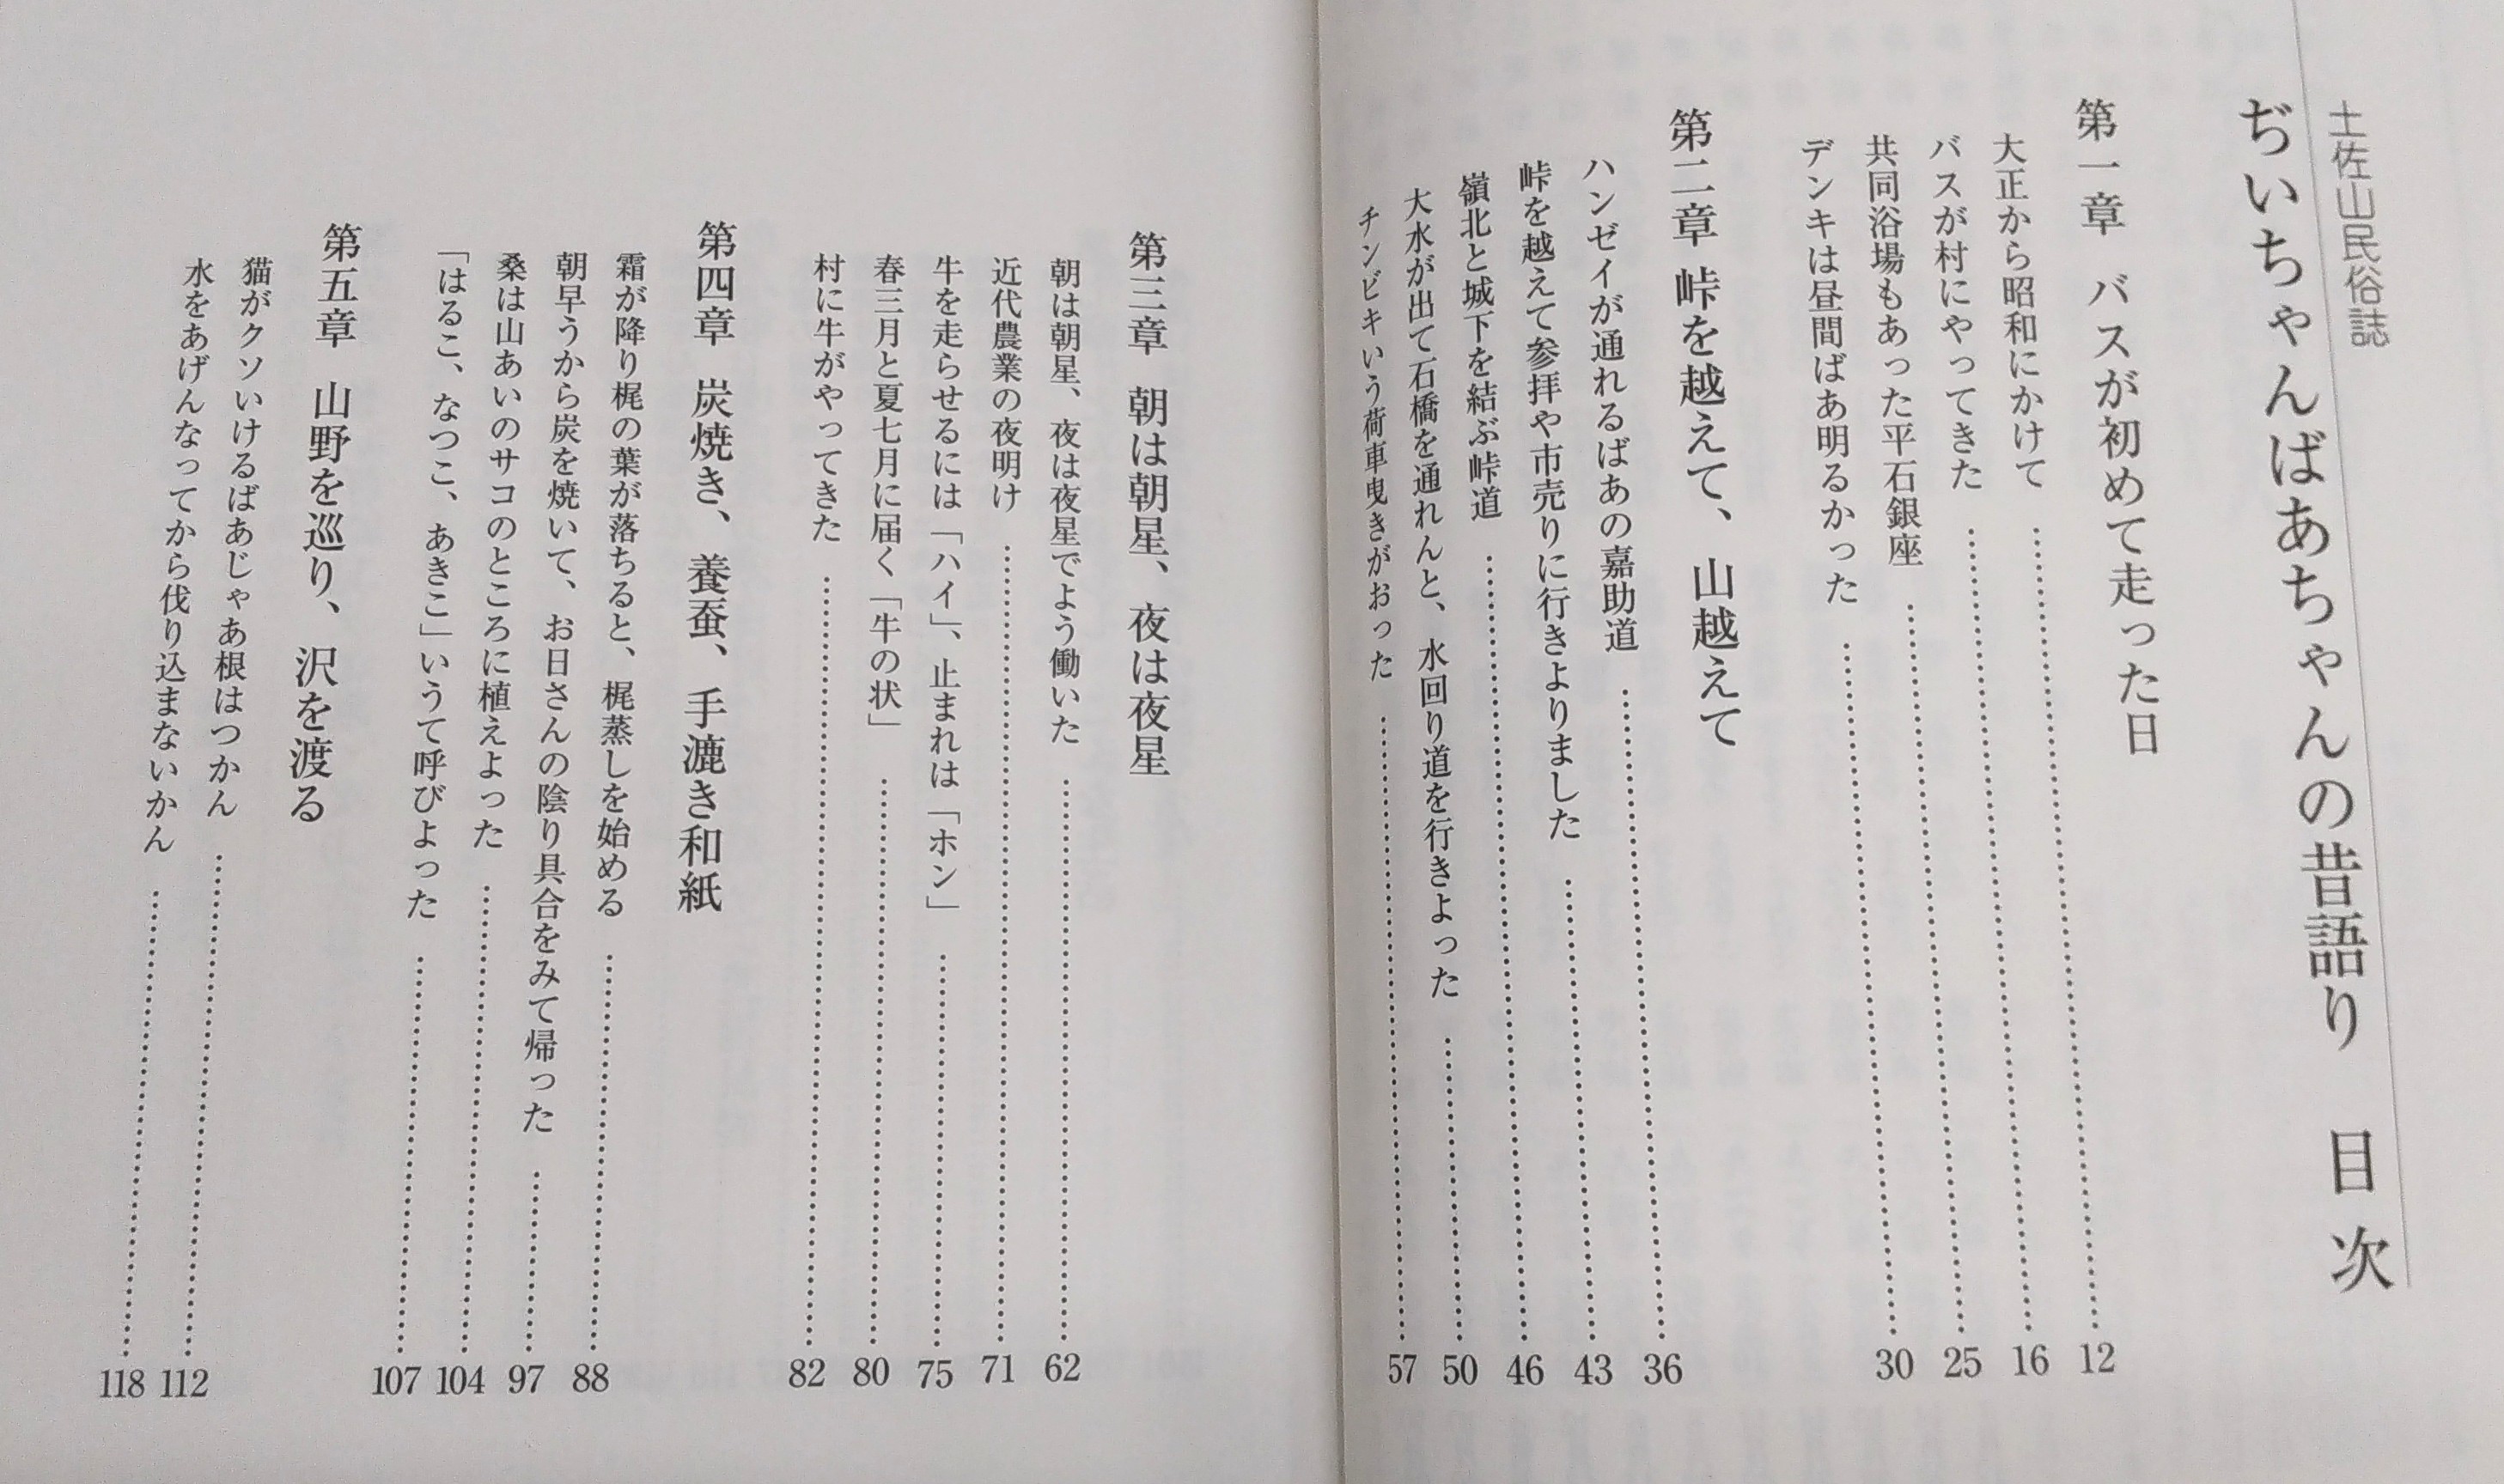 土佐山民俗誌
ぢいちゃんばあちゃんの昔語り　目次
第一章　バスが初めて走った日
大正から昭和にかけて……12
バスが村にやってきた……16
共同浴場もあった平石銀座……25
デンキは昼間ばあ明るかった……30
第二章　峠を越えて、山越えて
ハンゼイが通れるばあの嘉助道……36
峠を越えて参拝や市売りに行きよりました……43
嶺北と城下を結ぶ峠道……46
大水が出て石橋を通れんと、水回り道を行きよった……50
チンビキいう荷車曳きがおった……57
第三章　朝は朝星、夜は夜星
朝は朝星、夜は夜星でよう働いた……62
近代農業の夜明け……71
牛を走らせるには「ハイ」、止まれは「ホン」……75
春三月と夏七月に届く「牛の状」……80
村に牛がやってきた……82
第四章　炭焼き、養蚕、手漉き和紙
霜が降り梶の葉が落ちると、梶蒸しを始める……88
朝早うから炭を焼いて、お日さんの陰り具合をみて帰った……97
桑は山あいのサコのところに植えよった……104
「はるこ、なつこ、あきこ」いうて呼びよった……107
第五章　山野を巡り、沢を渡る
猫がクソいけるばあじゃあ根はつかん……112
水をあげんなってから伐り込まないかん……118